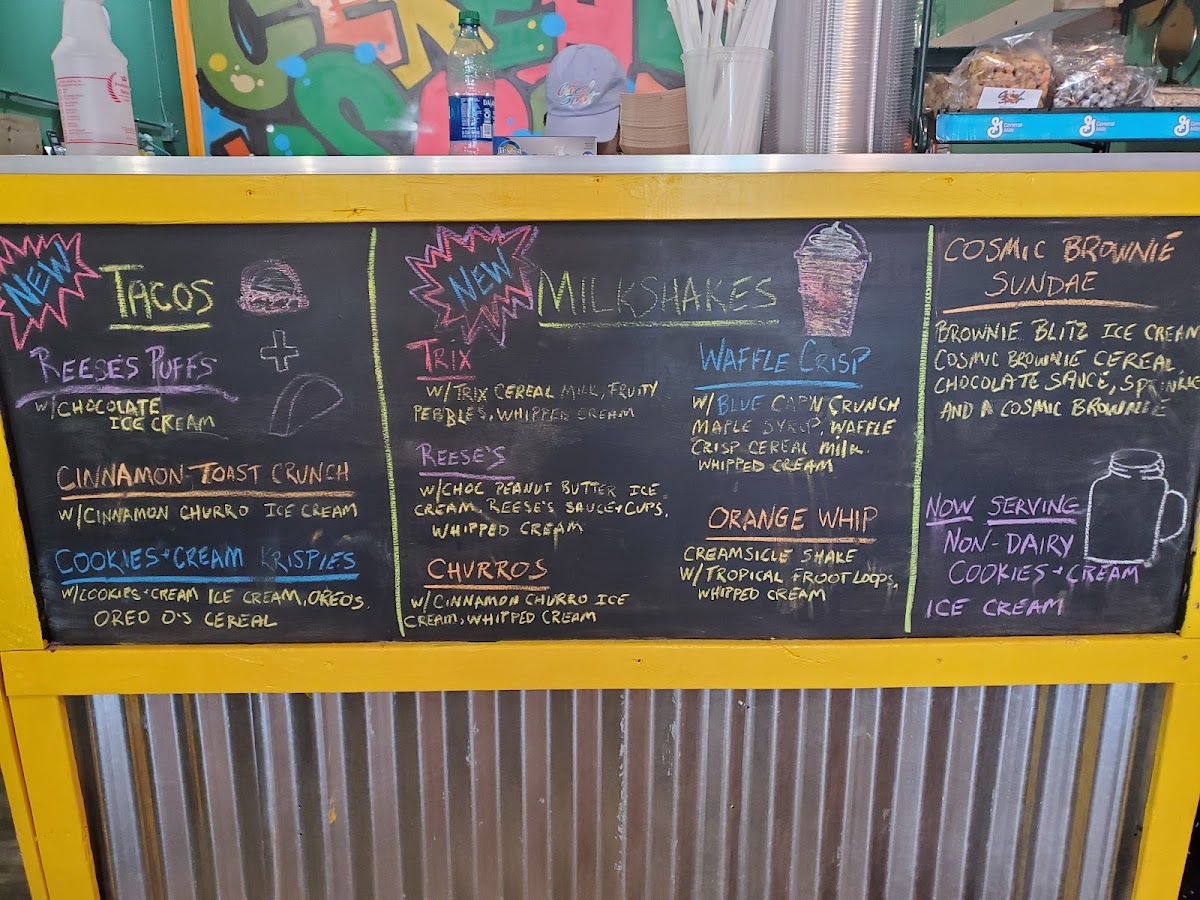 CEREAL
SPOT
General Mills
General Mills
General Mills
NEW
TACOS
REESE'S PUFFS
W/CHOCOLATE
ICE CREAM
CINNAMON TOAST CRUNCH
W/CINNAMON CHURRO ICE CREAM
COOKIES+CREAM KRISPIES
W/COOKIES+CREAM ICE CREAM, OREOS,
OREO O'S CEREAL
NEW
MILKSHAKES
TRIX
W/TRIX CEREAL MILK, FRUITY
PEBBLES, WHIPPED CREAM
REESE'S
W/CHOC PEANUT BUTTER ICE
CREAM, REESE'S SAUCE+CUPS,
WHIPPED CREAM
CHURROS
W/CINNAMON CHURRO ICE
CREAM, WHIPPED CREAM
WAFFLE CRISP
W/BLUE CAP'N CRUNCH
MAPLE SYRUP, WAFFLE
CRISP CEREAL MILK,
WHIPPED CREAM
ORANGE WHIP
CREAMSICLE SHAKE
W/TROPICAL FROOT LOOPS,
WHIPPED CREAM
COSMIC BROWNIE
SUNDAE
BROWNIE BLITZ ICE CREAM
COSMIC BROWNIE CEREAL,
CHOCOLATE SAUCE, SPRINKLE
AND A COSMIC BROWNIE
NOW SERVING
NON-DAIRY
COOKIES+CREAM
ICE CREAM